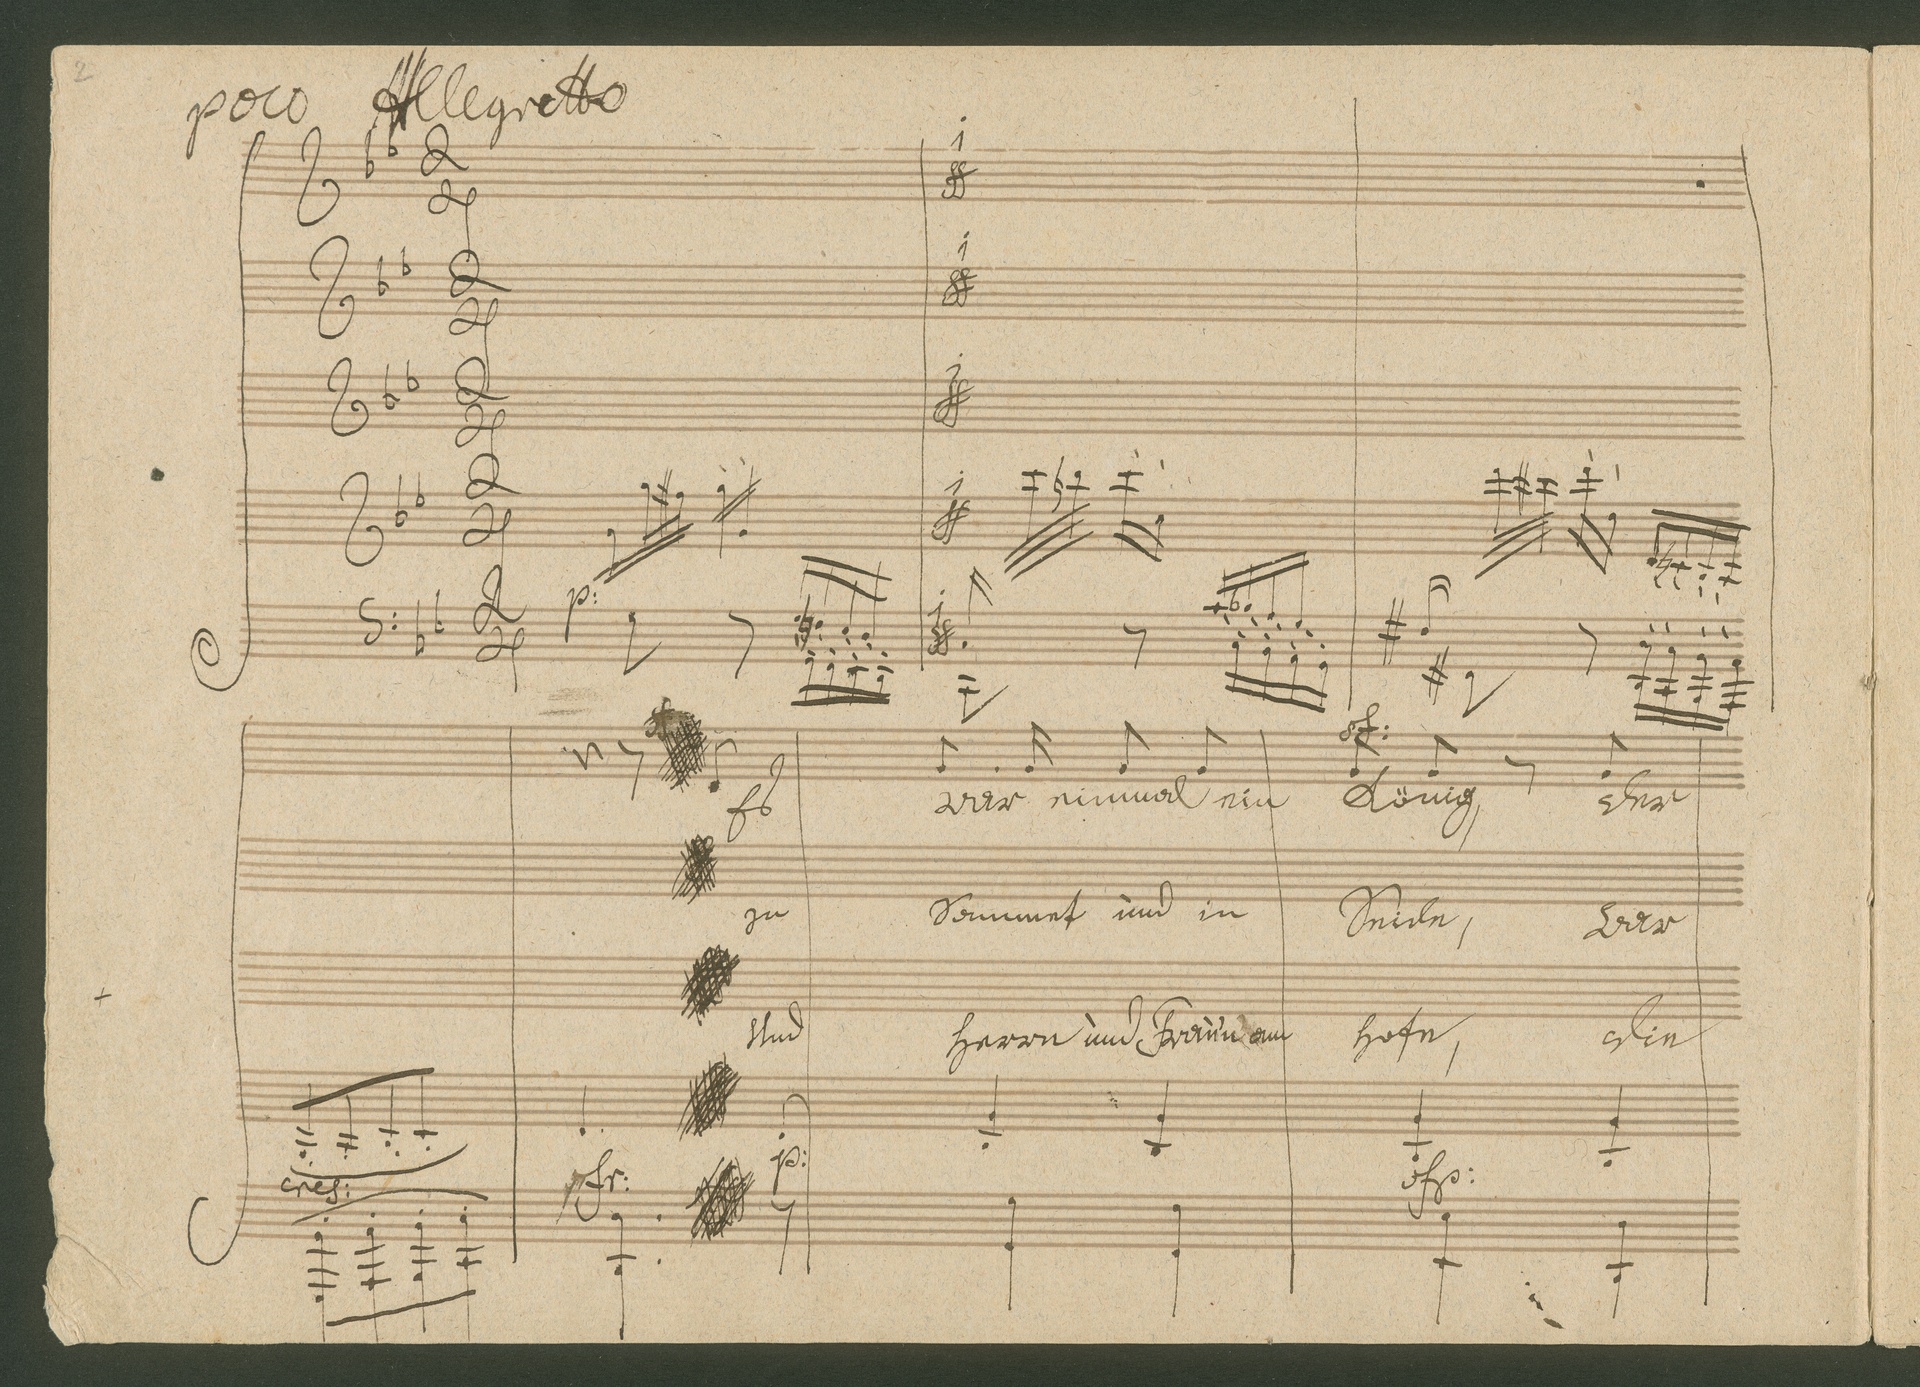 2
poco Allegretto
2
4
2
4
2
4
2
4
2
4
p:
sf:
Es war einmal ein König, der
zu Sammet und in Seide, war
Und Herrn und Fraün am Hofe, die
cresc:
p:
sfp: